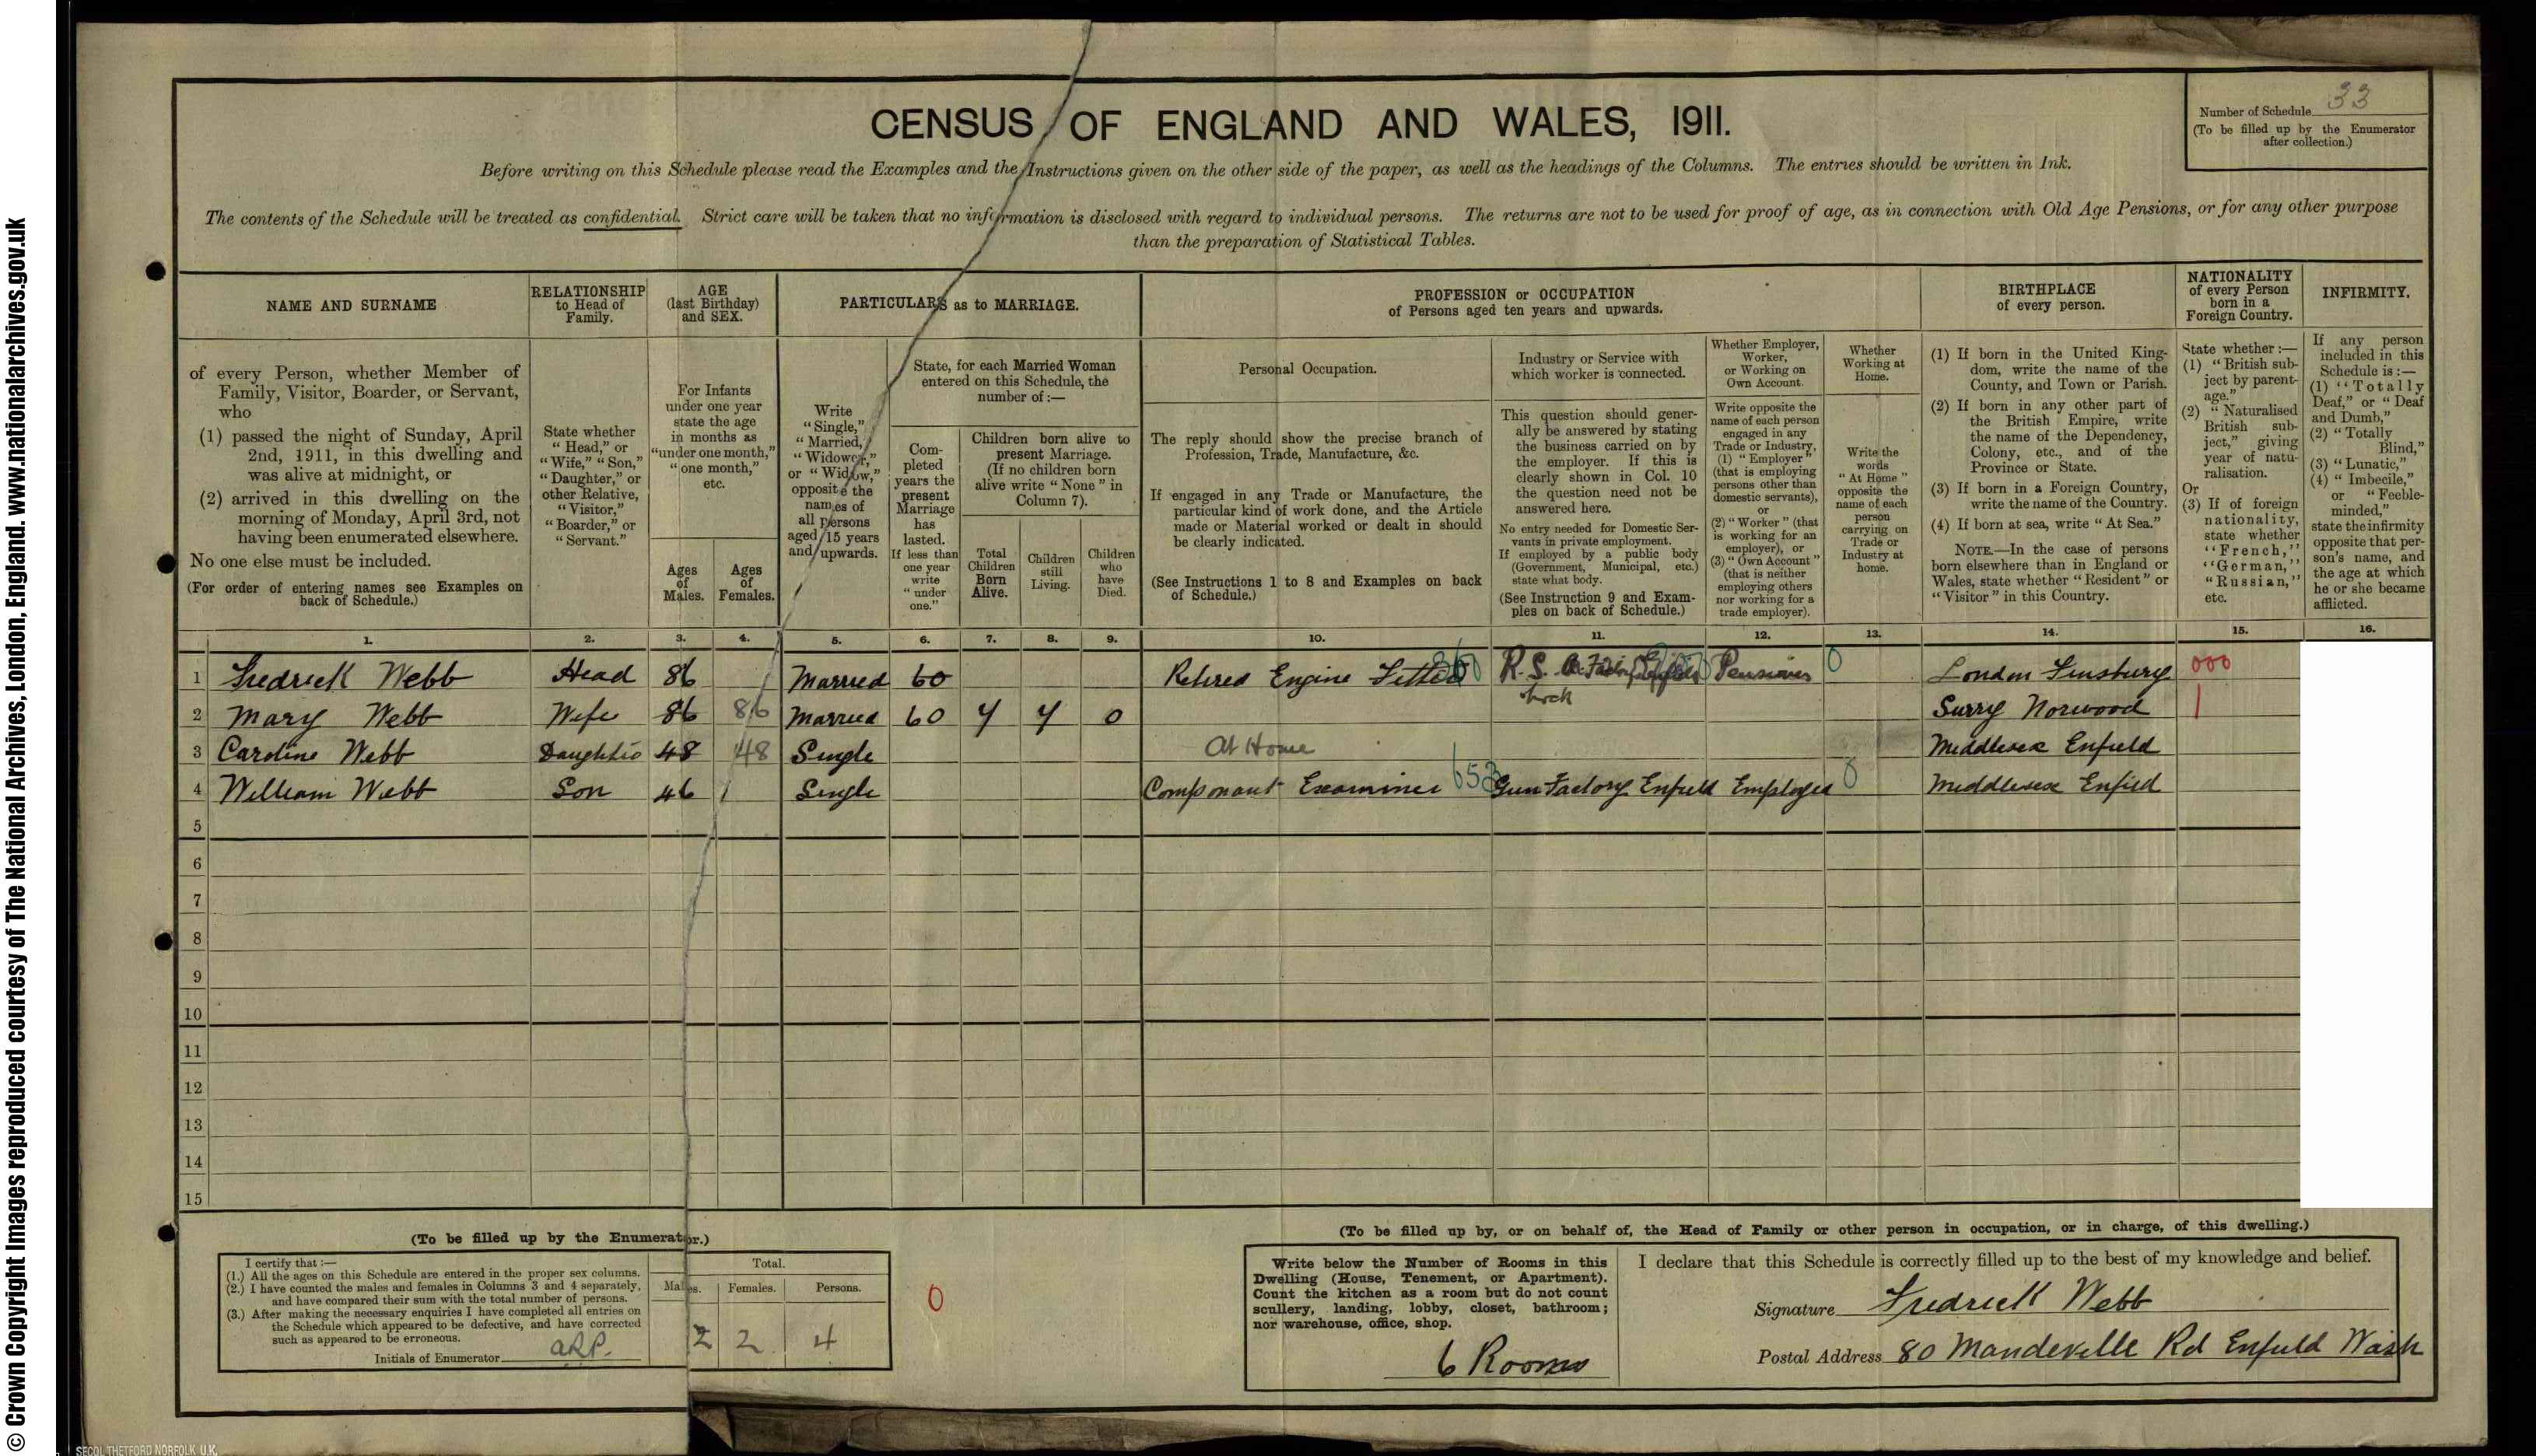 © Crown Copyright Images reproduced courtesy of The National Archives, London, England. www.nationalarchives.gov.uk
CENSUS OF ENGLAND AND WALES, 1911.
Number of Schedule 33
(To be filled up by the Enumerator
after collection.)
Before writing on this Schedule please read the Examples and the Instructions given on the other side of the paper, as well as the headings of the Columns. The entries should be written in Ink.
The contents of the Schedule will be treated as confidential. Strict care will be taken that no information is disclosed with regard to individual persons. The returns are not to be used for proof of age, as in connection with Old Age Pensions, or for any other purpose
than the preparation of Statistical Tables.
NAME AND SURNAME
of every Person, whether Member of
Family, Visitor, Boarder, or Servant,
who
(1) passed the night of Sunday, April
2nd, 1911, in this dwelling and
was alive at midnight, or
(2) arrived in this dwelling on the
morning of Monday, April 3rd, not
having been enumerated elsewhere.
No one else must be included.
(For order of entering names see Examples on
back of Schedule.)
RELATIONSHIP
to Head of
Family.
State whether
"Head," or
"Wife," "Son,"
"Daughter," or
other Relative,
"Visitor,"
"Boarder," or
"Servant."
AGE
(last Birthday)
and SEX.
For Infants
under one year
state the age
in months as
"under one month,"
"one month,"
etc.
Ages
of
Males.
Ages
of
Females.
PARTICULARS as to MARRIAGE.
Write
"Single,"
"Married,"
"Widower,"
or "Widow,"
opposite the
names of
all persons
aged 15 years
and upwards.
State, for each Married Woman
entered on this Schedule, the
number of :—
Com-
pleted
years the
present
Marriage
has
lasted.
If less than
one year
write
"under
one."
Children born alive to
present Marriage.
(If no children born
alive write "None" in
Column 7).
Total
Children
Born
Alive.
Children
still
Living.
Children
who
have
Died.
PROFESSION or OCCUPATION
of Persons aged ten years and upwards.
Personal Occupation.
The reply should show the precise branch of
Profession, Trade, Manufacture, &c.
If engaged in any Trade or Manufacture, the
particular kind of work done, and the Article
made or Material worked or dealt in should
be clearly indicated.
(See Instructions 1 to 8 and Examples on back
of Schedule.)
Industry or Service with
which worker is connected.
This question should gener-
ally be answered by stating
the business carried on by
the employer. If this is
clearly shown in Col. 10
the question need not be
answered here.
No entry needed for Domestic Ser-
vants in private employment.
If employed by a public body
(Government, Municipal, etc.)
state what body.
(See Instruction 9 and Exam-
ples on back of Schedule.)
Whether Employer,
Worker,
or Working on
Own Account.
Write opposite the
name of each person
engaged in any
Trade or Industry,
(1) "Employer"
(that is employing
persons other than
domestic servants),
or
(2) "Worker" (that
is working for an
employer), or
(3) "Own Account"
(that is neither
employing others
nor working for a
trade employer).
Whether
Working at
Home.
Write the
words
"At Home"
opposite the
name of each
person
carrying on
Trade or
Industry at
home.
BIRTHPLACE
of every person.
(1) If born in the United King-
dom, write the name of the
County, and Town or Parish.
(2) If born in any other part of
the British Empire, write
the name of the Dependency,
Colony, etc., and of the
Province or State.
(3) If born in a Foreign Country,
write the name of the Country.
(4) If born at sea, write "At Sea."
NOTE.—In the case of persons
born elsewhere than in England or
Wales, state whether "Resident" or
"Visitor" in this Country.
NATIONALITY
of every Person
born in a
Foreign Country.
State whether :—
(1) "British sub-
ject by parent-
age."
(2) "Naturalised
British sub-
ject," giving
year of natu-
ralisation.
Or
(3) If of foreign
nationality,
state whether
"French,"
"German,"
"Russian,"
etc.
INFIRMITY.
If any person
included in this
Schedule is :—
(1) "Totally
Deaf," or "Deaf
and Dumb,"
(2) "Totally
Blind,"
(3) "Lunatic,"
(4) "Imbecile,"
or "Feeble-
minded,"
state the infirmity
opposite that per-
son's name, and
the age at which
he or she became
afflicted.
1. 2. 3. 4. 5. 6. 7. 8. 9. 10. 11. 12. 13. 14. 15. 16.
1 Fredrick Webb Head 86 Married 60 Retired Engine Fitter R. S. Pensioner 0 London Finsbury 000
2 Mary Webb Wife 86 86 Married 60 4 4 0 Surry Norwood 1
3 Caroline Webb 48 48 Single At Home Middlesex Enfield
4 William Webb Son 46 Single Componant Examiner 653 Gun Factory Enfield Employed 0 Middlesex Enfield
5
6
7
8
9
10
11
12
13
14
15
(To be filled up by the Enumerator.)
I certify that :—
(1.) All the ages on this Schedule are entered in the proper sex columns.
(2.) I have counted the males and females in Columns 3 and 4 separately,
and have compared their sum with the total number of persons.
(3.) After making the necessary enquiries I have completed all entries on
the Schedule which appeared to be defective, and have corrected
such as appeared to be erroneous.
Initials of Enumerator
Total.
Males. Females. Persons.
2 2 4
0
(To be filled up by, or on behalf of, the Head of Family or other person in occupation, or in charge, of this dwelling.)
Write below the Number of Rooms in this
Dwelling (House, Tenement, or Apartment).
Count the kitchen as a room but do not count
scullery, landing, lobby, closet, bathroom;
nor warehouse, office, shop.
6 Rooms
I declare that this Schedule is correctly filled up to the best of my knowledge and belief.
Signature Fredrick Webb
Postal Address 80 Mandeville Rd Enfield Wash
SECOL THETFORD NORFOLK U.K.